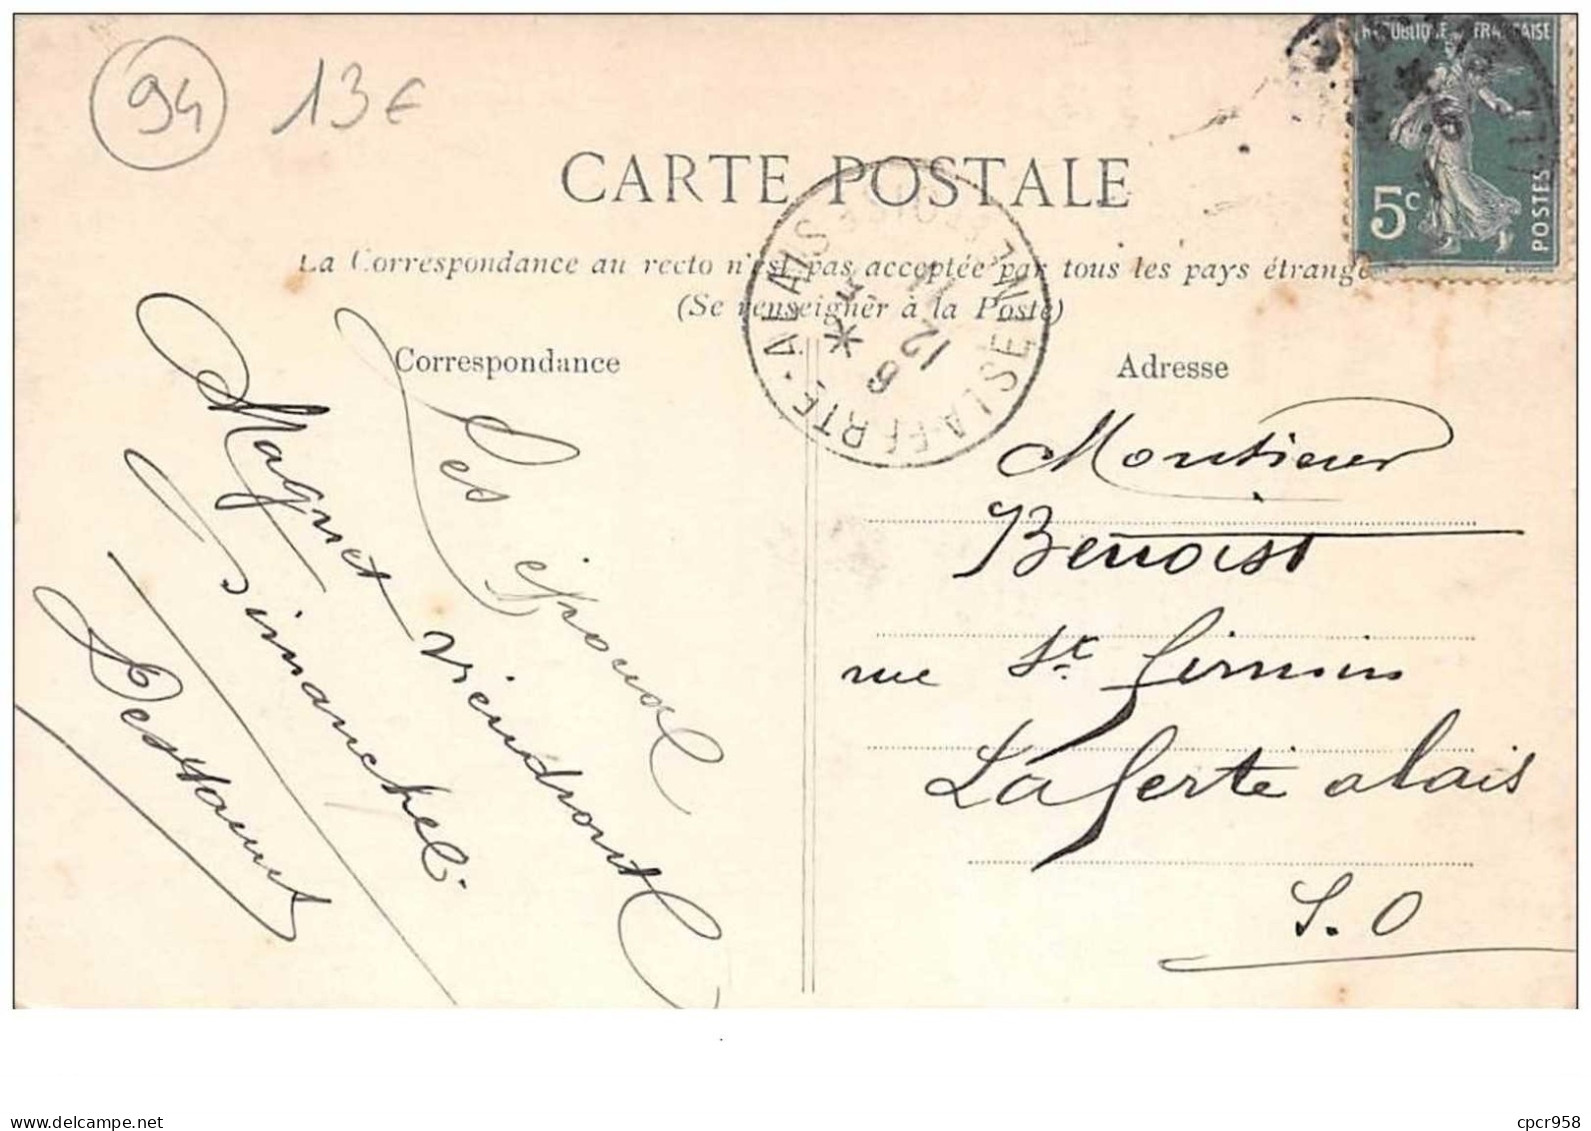 94
13€
REPUBLIQUE FRANCAISE
5c
POSTES
CARTE POSTALE
La Correspondance au recto n'est pas acceptée par tous les pays étrange
(Se renseigner à la Poste)
LA FERTE-ALAIS SEINE-ET-OISE
6
12
11
Correspondance
Adresse
Les époux
Magnet viendront
Dimanche
Monsieur
Benoist
rue St firmin
La ferte alais
S.O
cartes-postales-delcampe.net
cpcr958